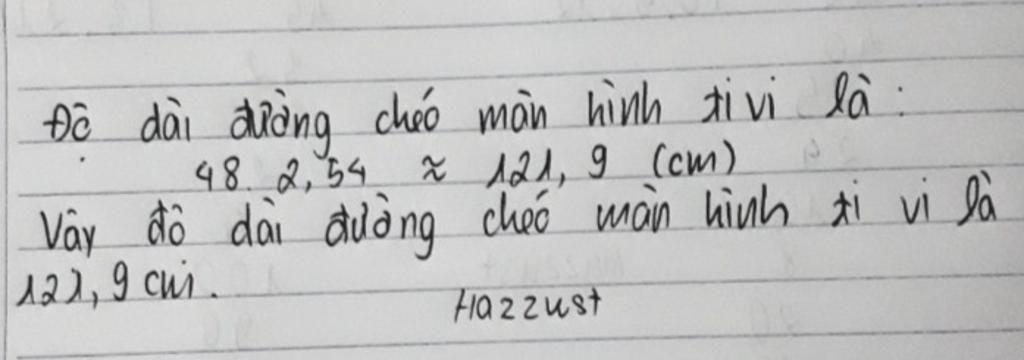 Độ dài đường chéo màn hình ti vi là:
48. 2,54 ≈ 121,9 (cm)
Vậy độ dài đường chéo màn hình ti vi là
121,9 cm.
Hazzust